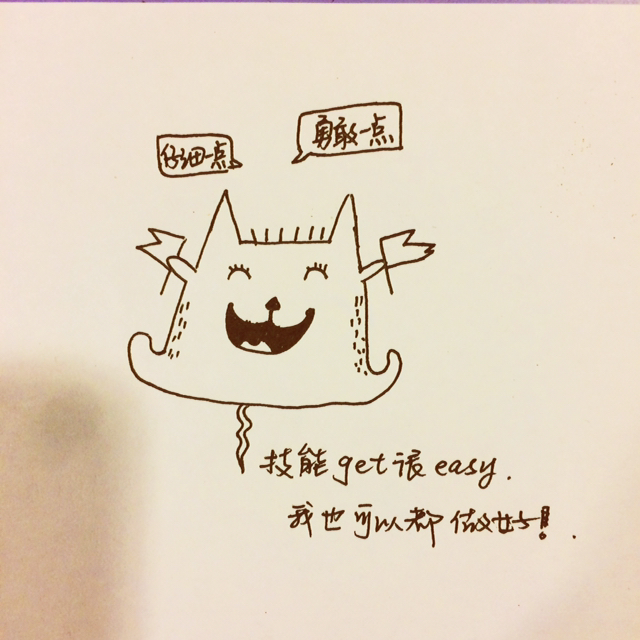 仔细一点
勇敢一点
技能get很easy.
我也可以都做好!.